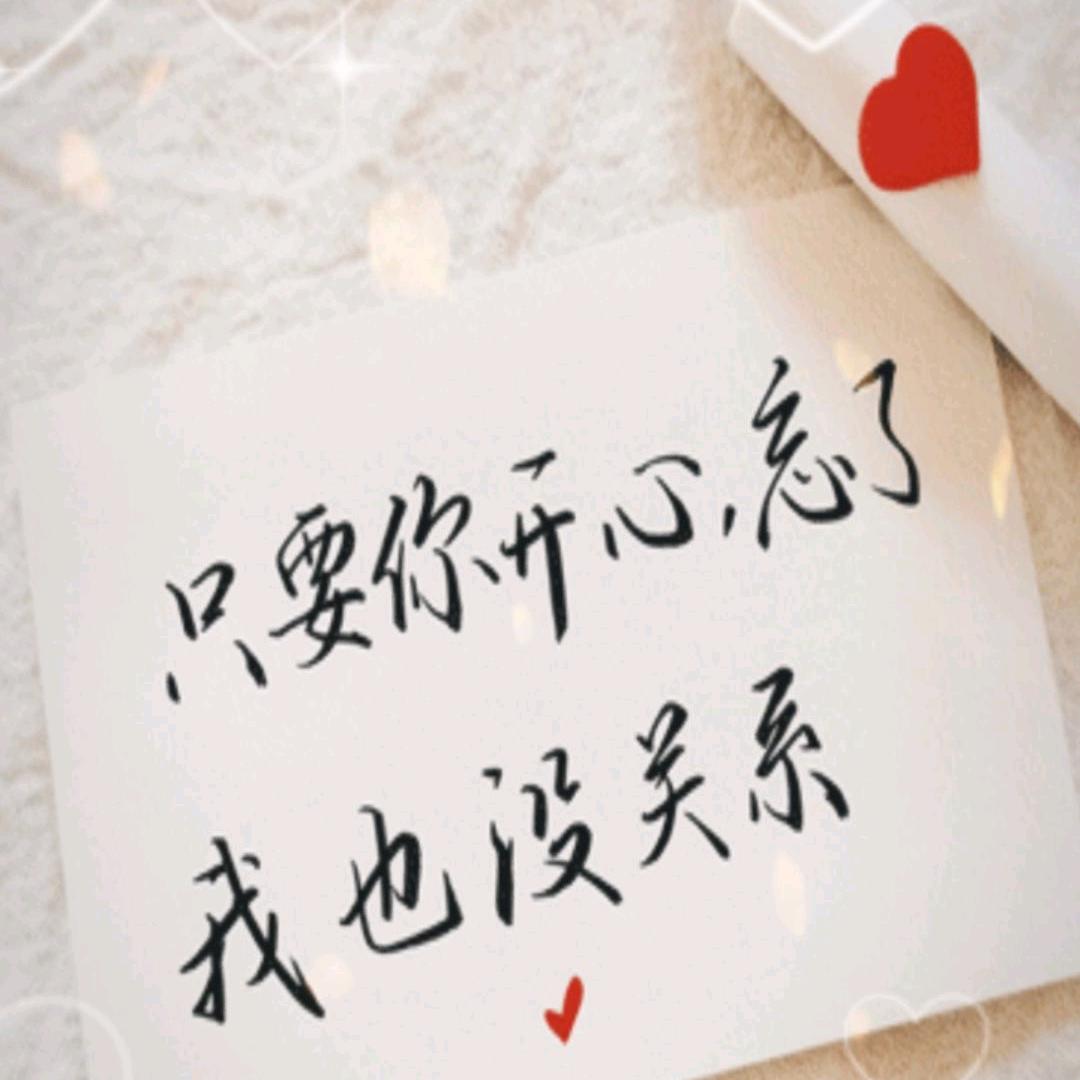 只要你开心,忘了
我也没关系